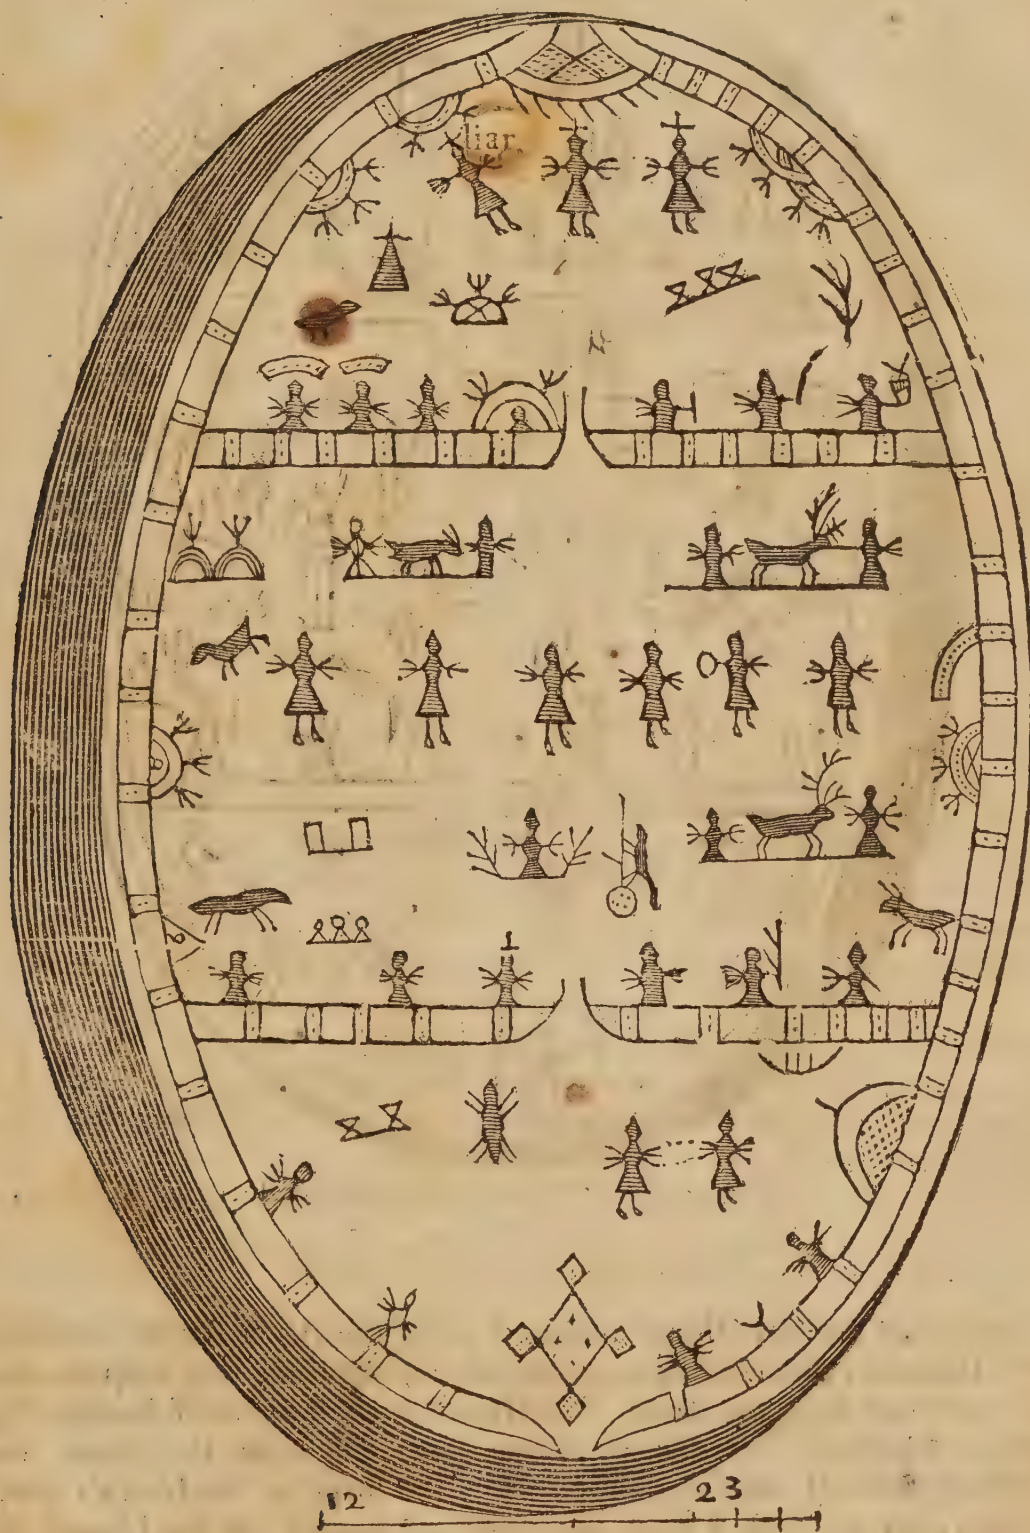 liar.
12 23